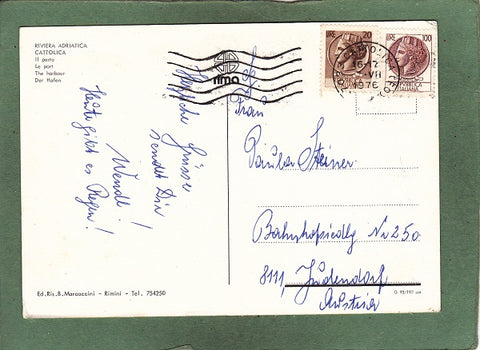 RIVIERA ADRIATICA
CATTOLICA
Il porto
Le port
The harbour
Der Hafen
Herzliche Grüsse
sendet Dir
Wendl!
Heute gibt es Regen!
rima
LIRE 20
LIRE 100
16-12
VII
1976
Frau
Paula Steiner
Bahnhofsiedlg Nr 250
8111, Judendorf
Austria
Ed. Ris. B. Maraoccini - Rimini - Tel. 754250